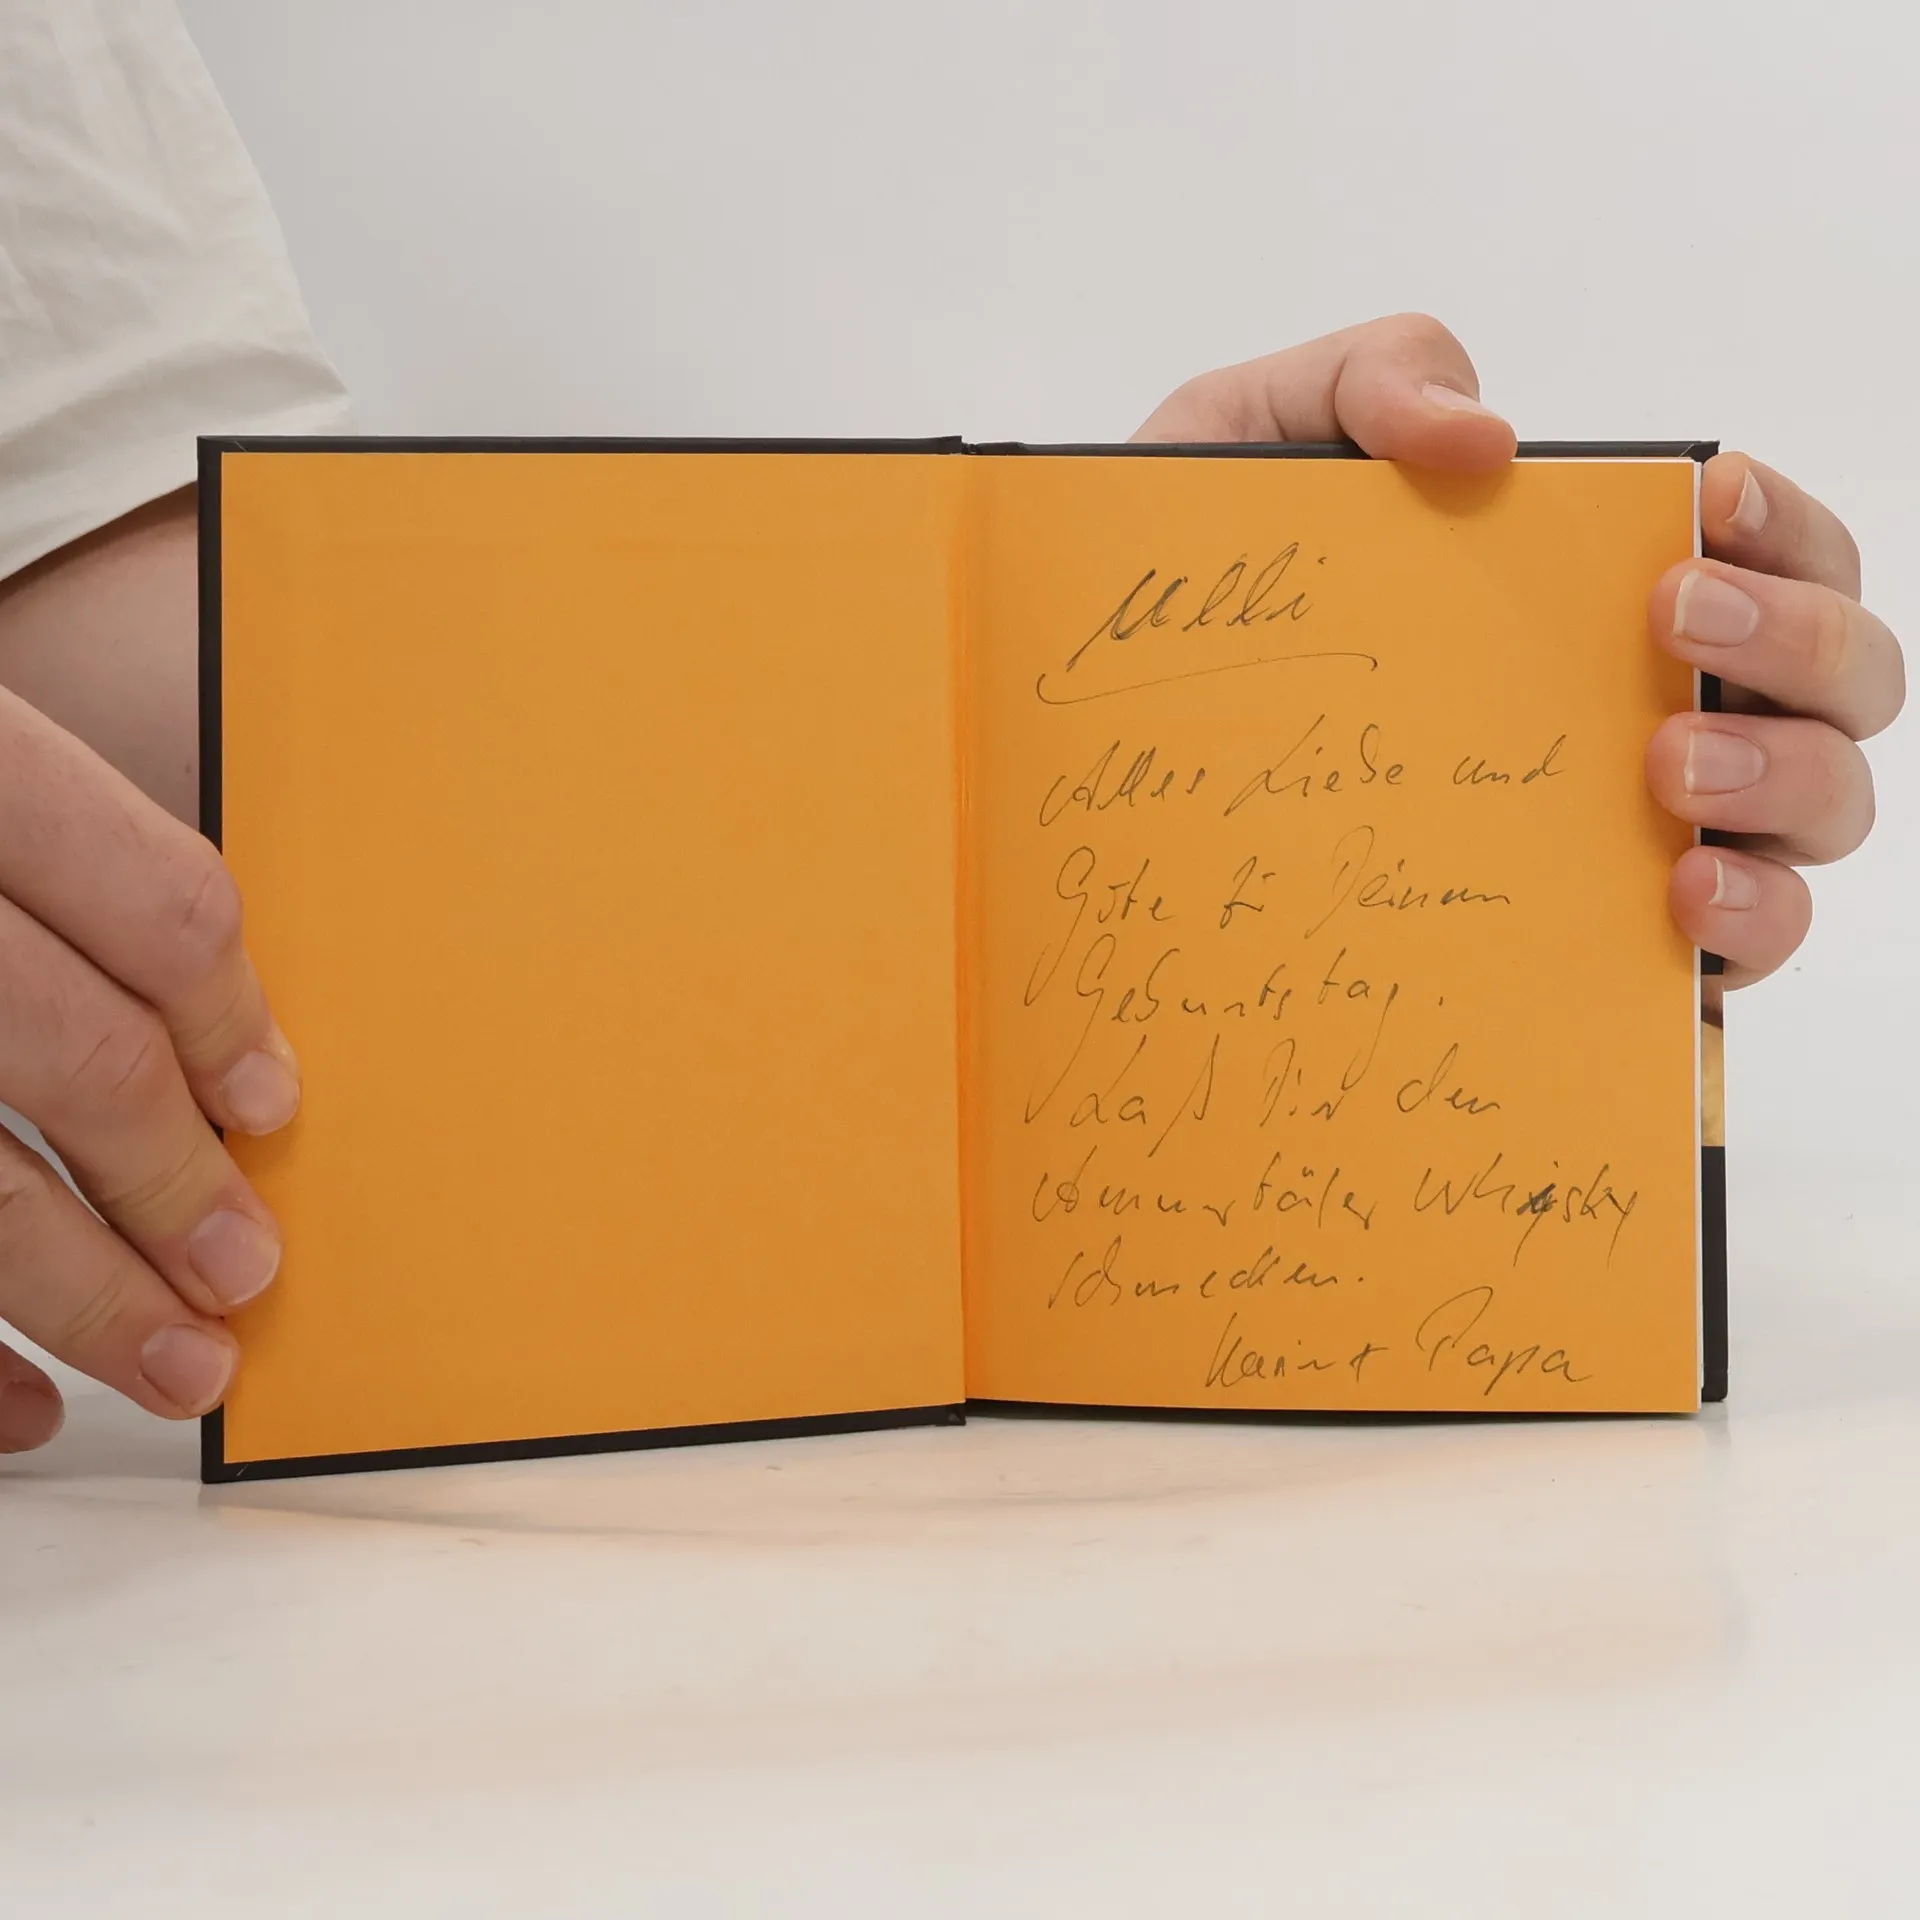 Ulli
Alles Liebe und
Gute für Deinen
Geburtstag.
Laß Dir den
Ammertäler Whisky
schmecken.
Papa